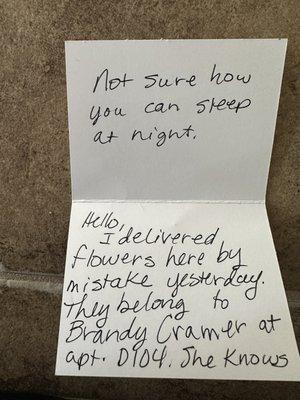 Not sure how
you can sleep
at night.
Hello,
I delivered
flowers here by
mistake yesterday.
They belong to
Brandy Cramer at
apt. D104. She Knows